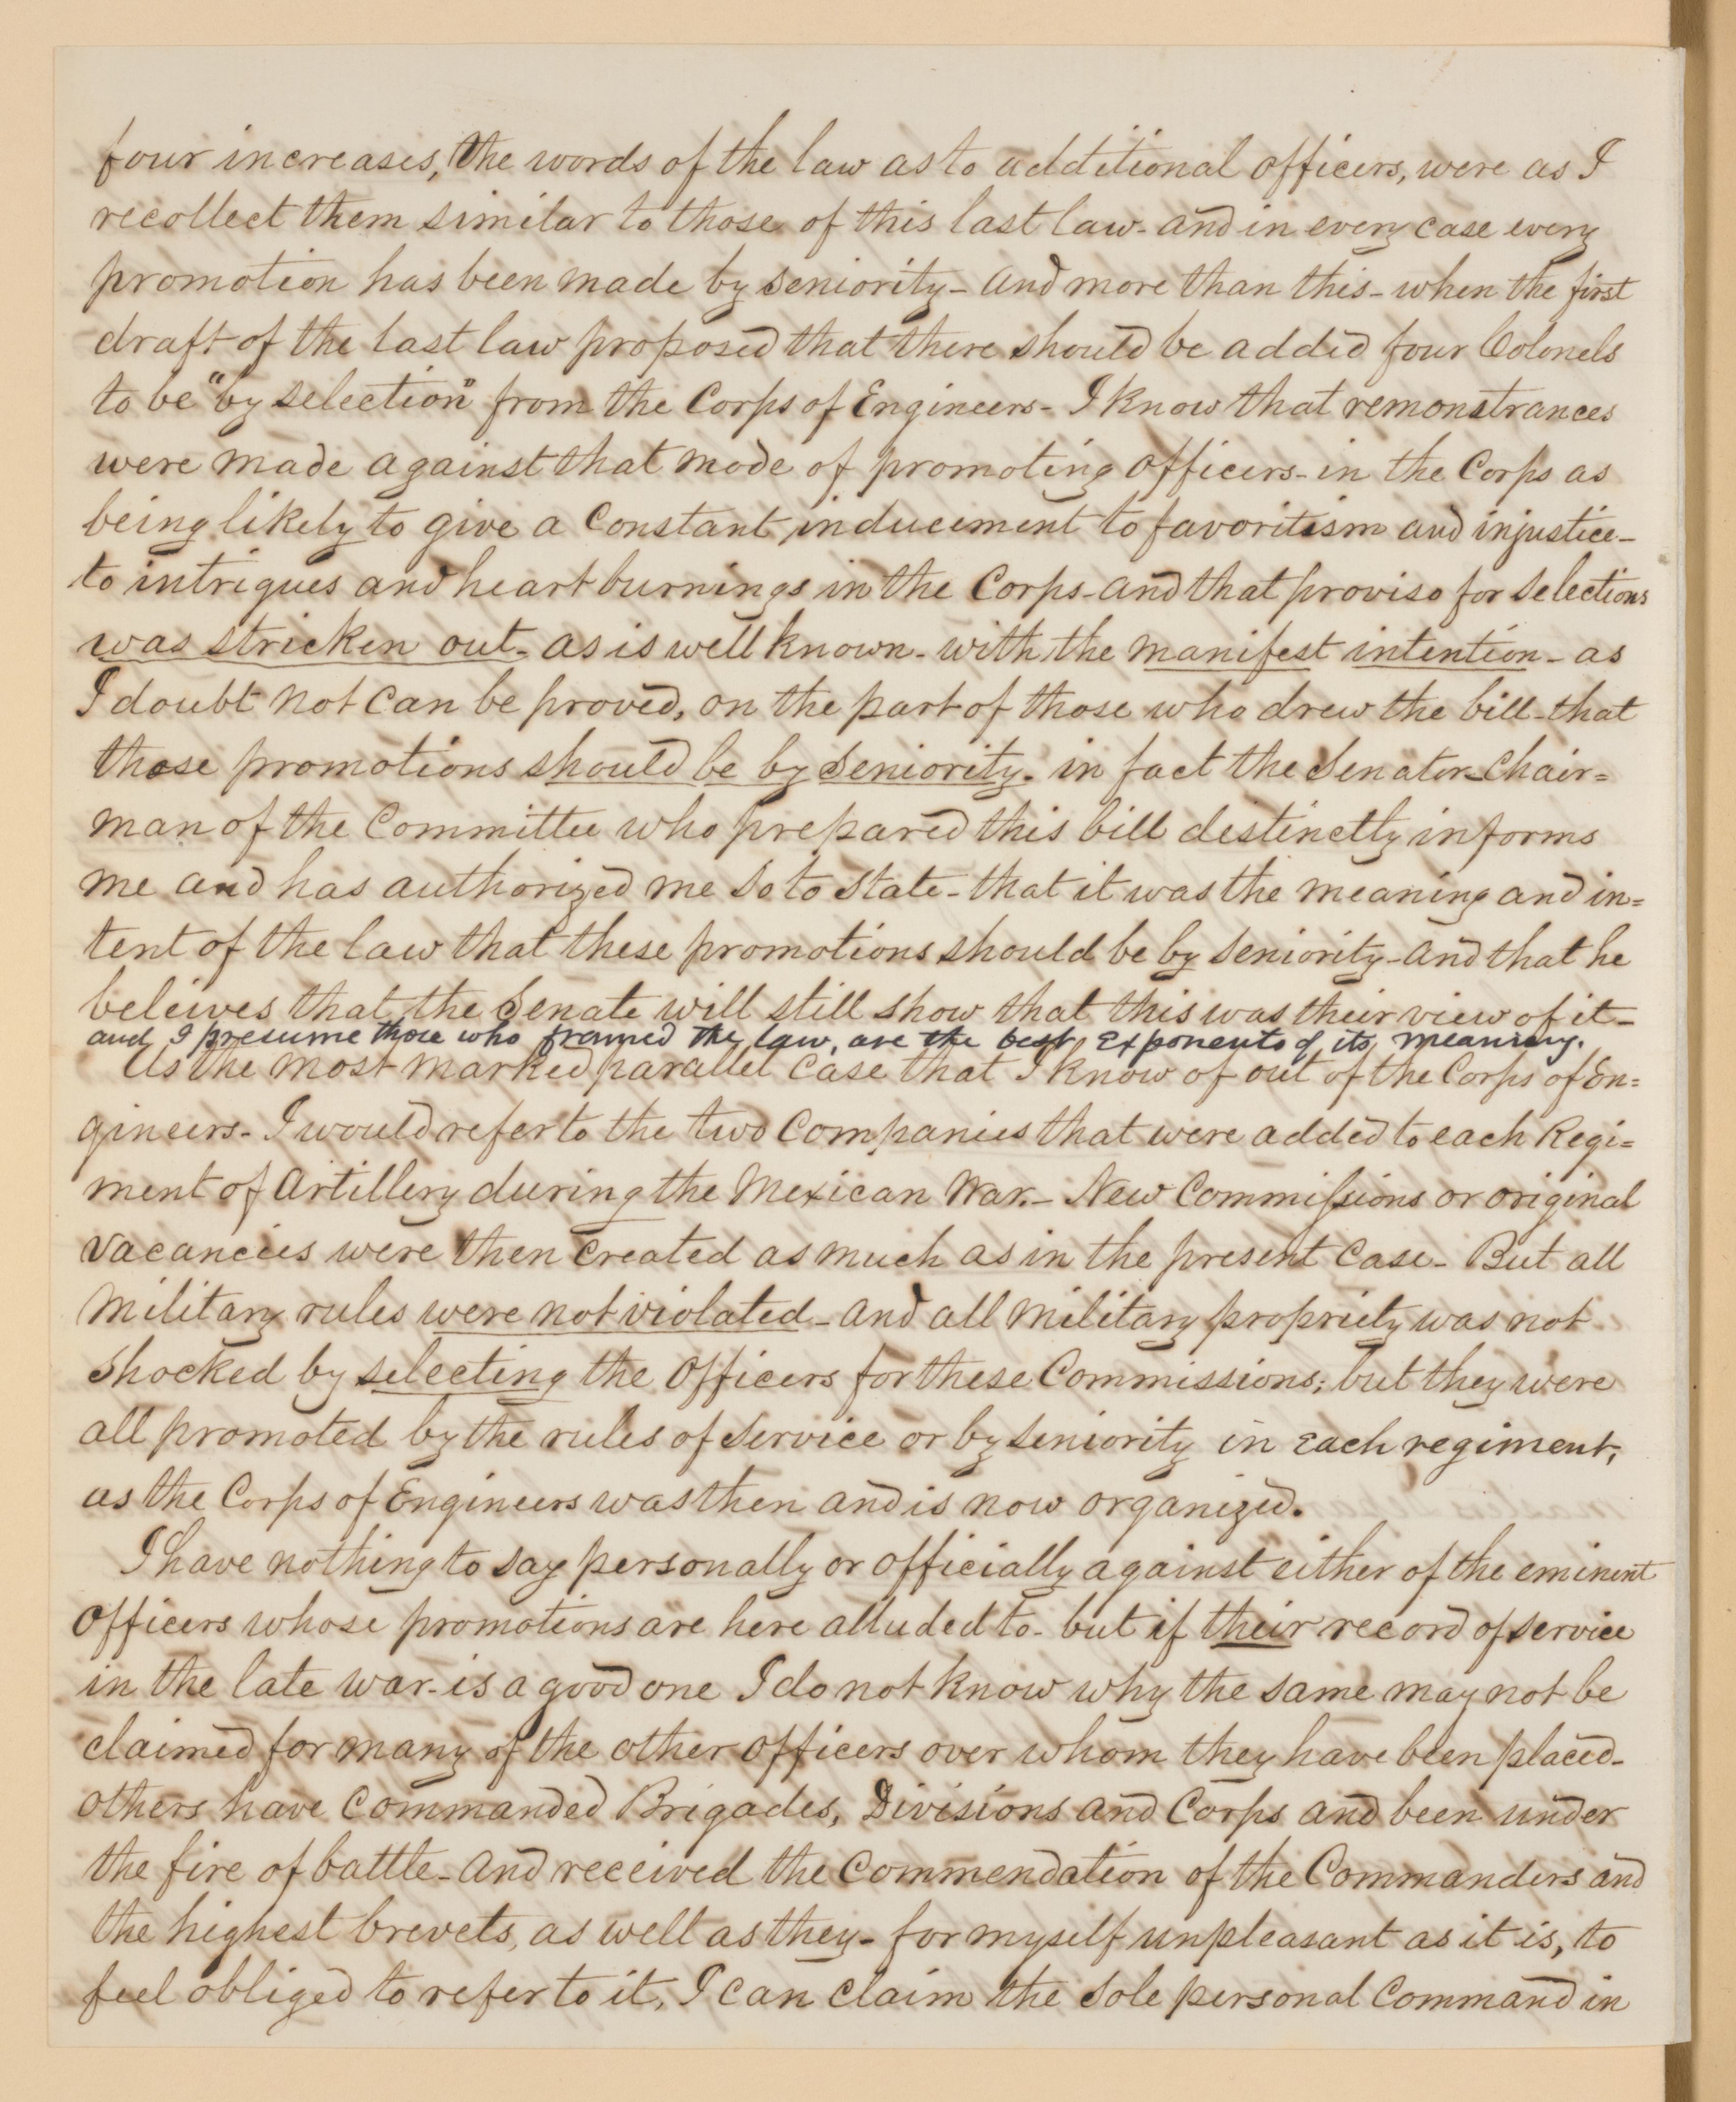 four increases, the words of the law as to additional officers, were as I
recollect them similar to those of this last law - and in every case every
promotion has been made by seniority - and more than this - when the first
draft of the last law proposed that there should be added four Colonels
to be "by selection" from the Corps of Engineers - I know that remonstrances
were made against that mode of promoting officers - in the Corps as
being likely to give a constant inducement to favoritism and injustice -
to intrigues and heart burnings in the Corps - and that proviso for selections
was stricken out - as is well known - with the manifest intention - as
I doubt not can be proved, on the part of those who drew the bill - that
those promotions should be by seniority - in fact the Senator - Chair=
man of the Committee who prepared this bill distinctly informs
me and has authorized me so to state - that it was the meaning and in=
tent of the law that these promotions should be by seniority - and that he
beleives that the Senate will still show that this was their view of it -
and I presume those who framed the law, are the best exponents of its meaning.
As the most marked parallel case that I know of out of the Corps of En=
gineers - I would refer to the two Companies that were added to each Regi=
ment of Artillery during the Mexican War. - New Commissions or original
vacancies were then created as much as in the present case - But all
military rules were not violated - and all military propriety was not
shocked by selecting the officers for these Commissions; but they were
all promoted by the rules of service or by seniority in each regiment,
as the Corps of Engineers was then and is now organized.
I have nothing to say personally or officially against either of the eminent
officers whose promotions are here alluded to - but if their record of service
in the late war - is a good one I do not know why the same may not be
claimed for many of the other officers over whom they have been placed -
others have commanded Brigades, Divisions and Corps and been under
the fire of battle - and received the commendation of the Commanders and
the highest brevets, as well as they - for myself unpleasant as it is, to
feel obliged to refer to it, I can claim the sole personal command in